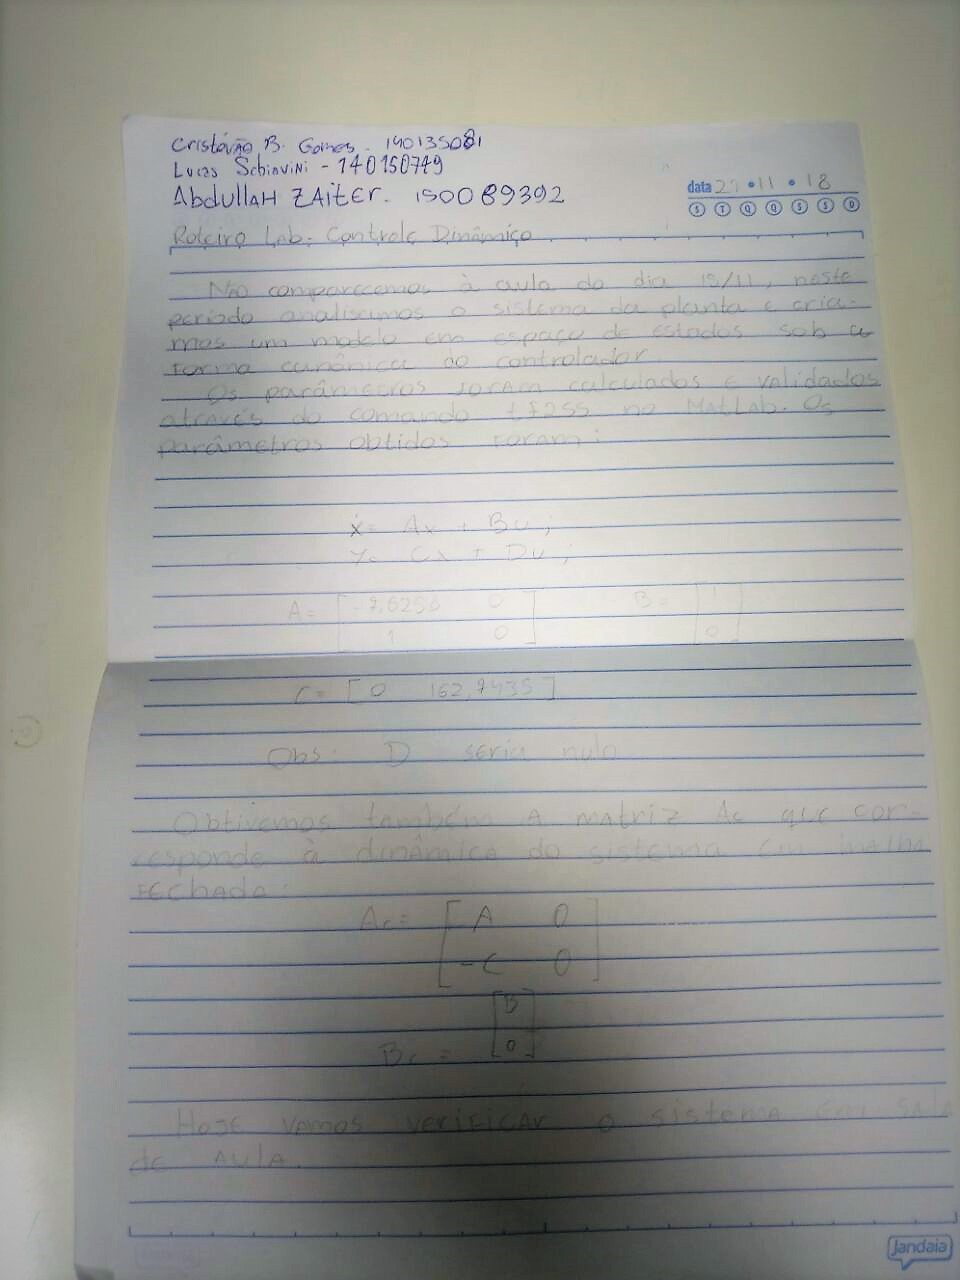 Cristóvão B. Gomes - 140135081
Lucas Schiavini - 140150749
Abdullah Zaiter. 150089392
data 29 • 11 • 18
S T Q Q S S D
Roteiro Lab. Controle Dinâmico
Não comparecemos à aula do dia 15/11, neste
período analisamos o sistema da planta e cria-
mos um modelo em espaço de estados sob a
forma canônica do controlador.
Os parâmetros foram calculados e validados
através do comando tf2ss no MatLab. Os
parâmetros obtidos foram:
ẋ = Ax + Bu;
y = Cx + Du;
A = [ -7,6250 0 B = [ 1
1 0 ] 0 ]
C = [ 0 162,7435 ]
Obs: D seria nulo
Obtivemos também a matriz Ac que cor-
responde à dinâmica do sistema em malha
fechada:
Ac = [ A 0
-C 0 ]
Bc = [ B
0 ]
Hoje vamos verificar o sistema em sala
de aula.
Jandaia